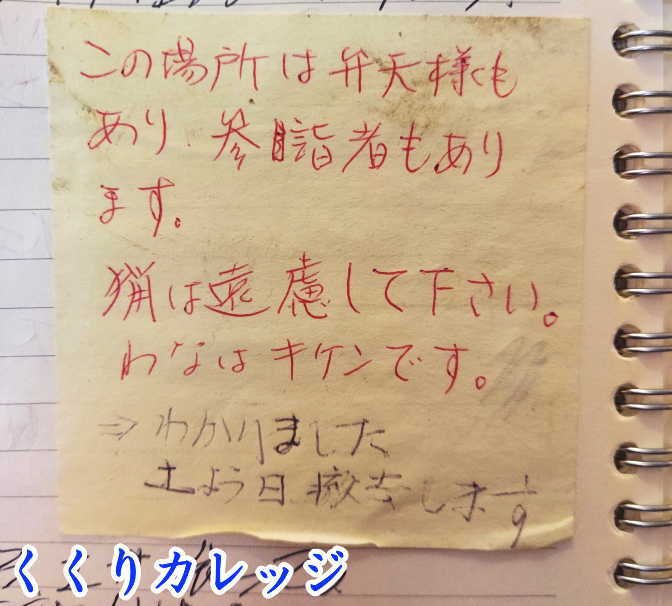 この場所は弁天様も
あり、参詣者もあり
ます。
猟は遠慮して下さい。
わなはキケンです。
⇒わかりました
土よう日撤去します 1/9
くくりカレッジ